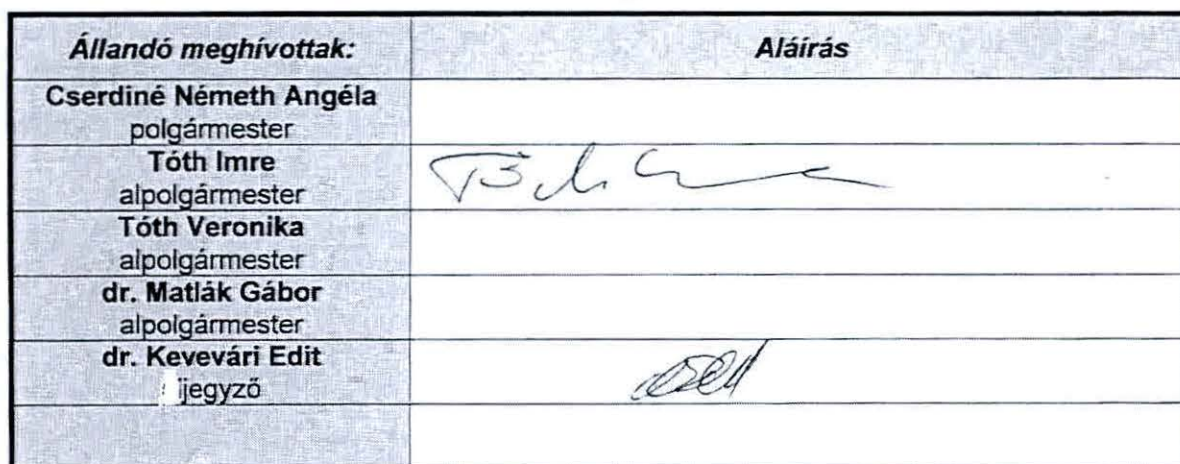 Állandó meghívottak: Aláírás
Cserdiné Németh Angéla
polgármester
Tóth Imre
alpolgármester
Tóth Veronika
alpolgármester
dr. Matlák Gábor
alpolgármester
dr. Kevevári Edit
jegyző